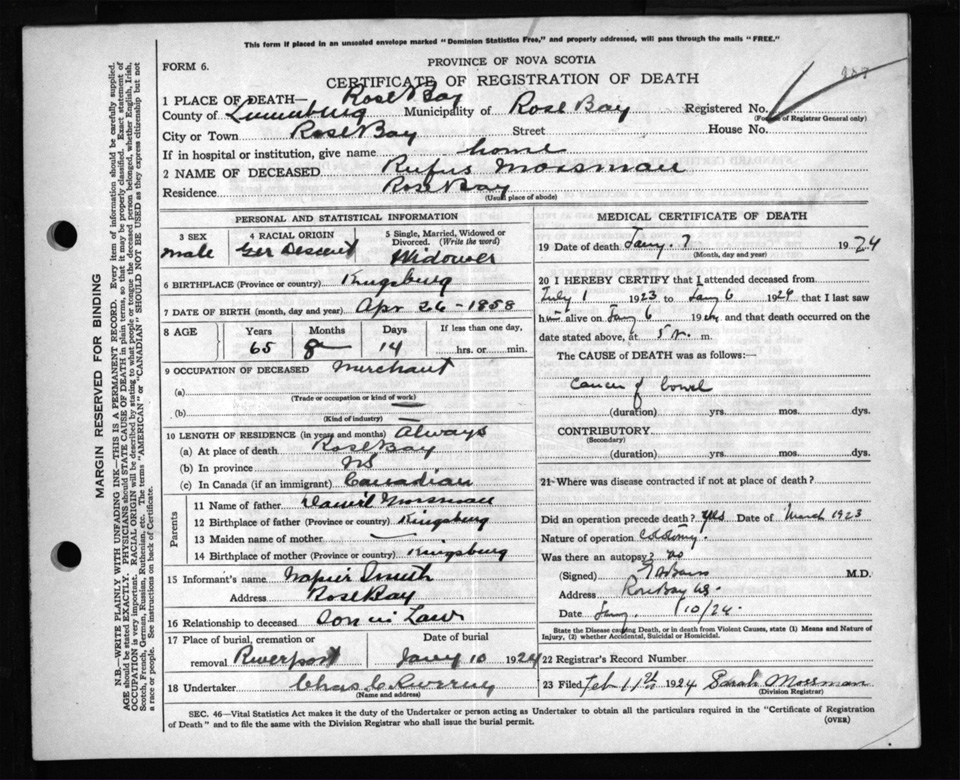 This form if placed in an unsealed envelope marked "Dominion Statistics Free," and properly addressed, will pass through the mails "FREE."
FORM 6.
PROVINCE OF NOVA SCOTIA
CERTIFICATE OF REGISTRATION OF DEATH
1 PLACE OF DEATH— Rose Bay
County of Lunenburg Municipality of Rose Bay Registered No.
(For use of Registrar General only)
City or Town Rose Bay Street House No.
If in hospital or institution, give name home
2 NAME OF DECEASED Rufus Mossman
Residence Rose Bay
(Usual place of abode)
PERSONAL AND STATISTICAL INFORMATION
3 SEX 4 RACIAL ORIGIN 5 Single, Married, Widowed or Divorced. (Write the word)
male Ger Descent Widower
6 BIRTHPLACE (Province or country) Kingsburg
7 DATE OF BIRTH (month, day and year) Apr 26 - 1858
8 AGE Years Months Days If less than one day,
65 8 14 hrs. or min.
9 OCCUPATION OF DECEASED Merchant
(a)
(Trade or occupation or kind of work)
(b)
(Kind of industry)
10 LENGTH OF RESIDENCE (in years and months) Always
(a) At place of death Rose Bay
(b) In province NS
(c) In Canada (if an immigrant) Canadian
Parents
11 Name of father Daniel Mossman
12 Birthplace of father (Province or country) Kingsburg
13 Maiden name of mother
14 Birthplace of mother (Province or country) Kingsburg
15 Informant's name Napier Smith
Address Rose Bay
16 Relationship to deceased Son in Law
17 Place of burial, cremation or Date of burial
removal Riverport Jany 10 1924
18 Undertaker Chas C
(Name and address)
MEDICAL CERTIFICATE OF DEATH
19 Date of death Jany. 7 1924
(Month, day and year)
20 I HEREBY CERTIFY that I attended deceased from
July 1 1923 to Jany 6 1924 that I last saw
him alive on Jany 6 1924 and that death occurred on the
date stated above, at 5 m.
The CAUSE of DEATH was as follows:—
Cancer of bowel
(duration) yrs. mos. dys.
CONTRIBUTORY
(Secondary)
(duration) yrs. mos. dys.
21 Where was disease contracted if not at place of death?
Did an operation precede death? yes Date of March 1923
Nature of operation
Was there an autopsy? no
(Signed) M.D.
Address Rose Bay NS.
Date Jany. 10/24
State the Disease causing Death, or in death from Violent Causes, state (1) Means and Nature of
Injury, (2) whether Accidental, Suicidal or Homicidal.
22 Registrar's Record Number
23 Filed Feb 11 1924 Sarah Mossman
(Division Registrar)
SEC. 46—Vital Statistics Act makes it the duty of the Undertaker or person acting as Undertaker to obtain all the particulars required in the "Certificate of Registration
of Death" and to file the same with the Division Registrar who shall issue the burial permit. (OVER)
MARGIN RESERVED FOR BINDING
N.B.—WRITE PLAINLY WITH UNFADING INK—THIS IS A PERMANENT RECORD. Every item of information should be carefully supplied.
AGE should be stated EXACTLY. PHYSICIANS should STATE CAUSE OF DEATH in plain terms, so that it may be properly classified. Exact statement of
OCCUPATION is very important. RACIAL ORIGIN will be described by stating to what people or tongue the deceased person belonged, whether English, Irish,
Scotch, French, German, Russian, Ruthenian, etc. The terms "AMERICAN" or "CANADIAN" SHOULD NOT BE USED as they express citizenship but not
a race or people. See instructions on back of Certificate.